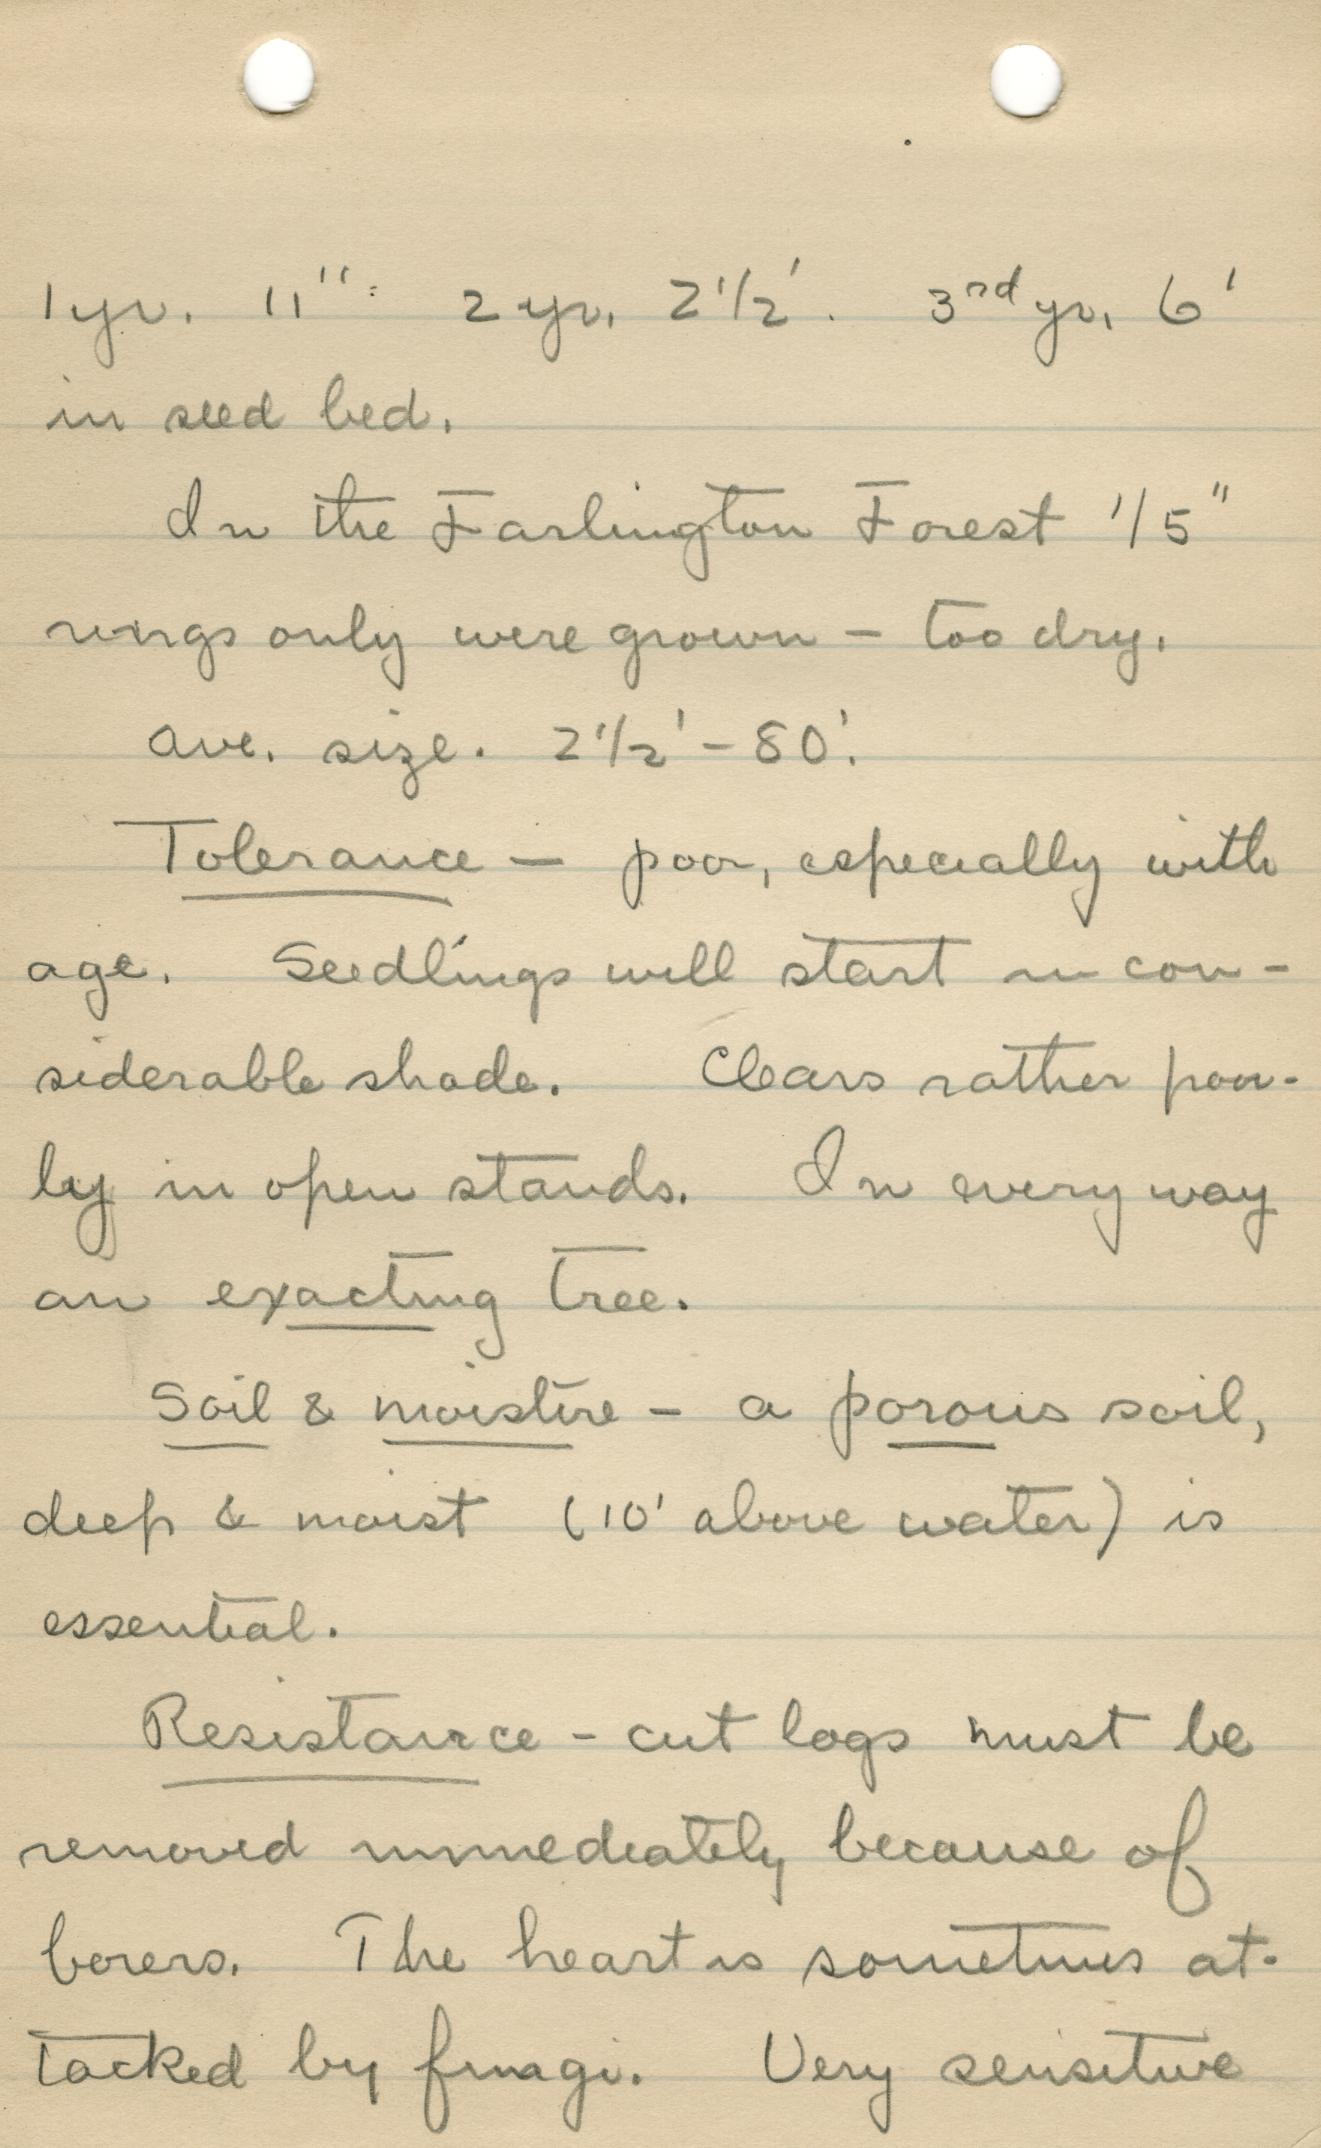 1 yr. 11": 2 yr. 2 1/2'. 3rd yr. 6'
in seed bed.
In the Farlington Forest 1/5"
rings only were grown – too dry.
ave. size. 2 1/2' – 80'.
Tolerance – poor, especially with
age. Seedlings will start in con-
siderable shade. Clears rather poor-
ly in open stands. In every way
an exacting tree.
Soil & moisture – a porous soil,
deep & moist (10' above water) is
essential.
Resistance – cut logs must be
removed immediately because of
borers. The heart is sometimes at-
tacked by fungi. Very sensitive